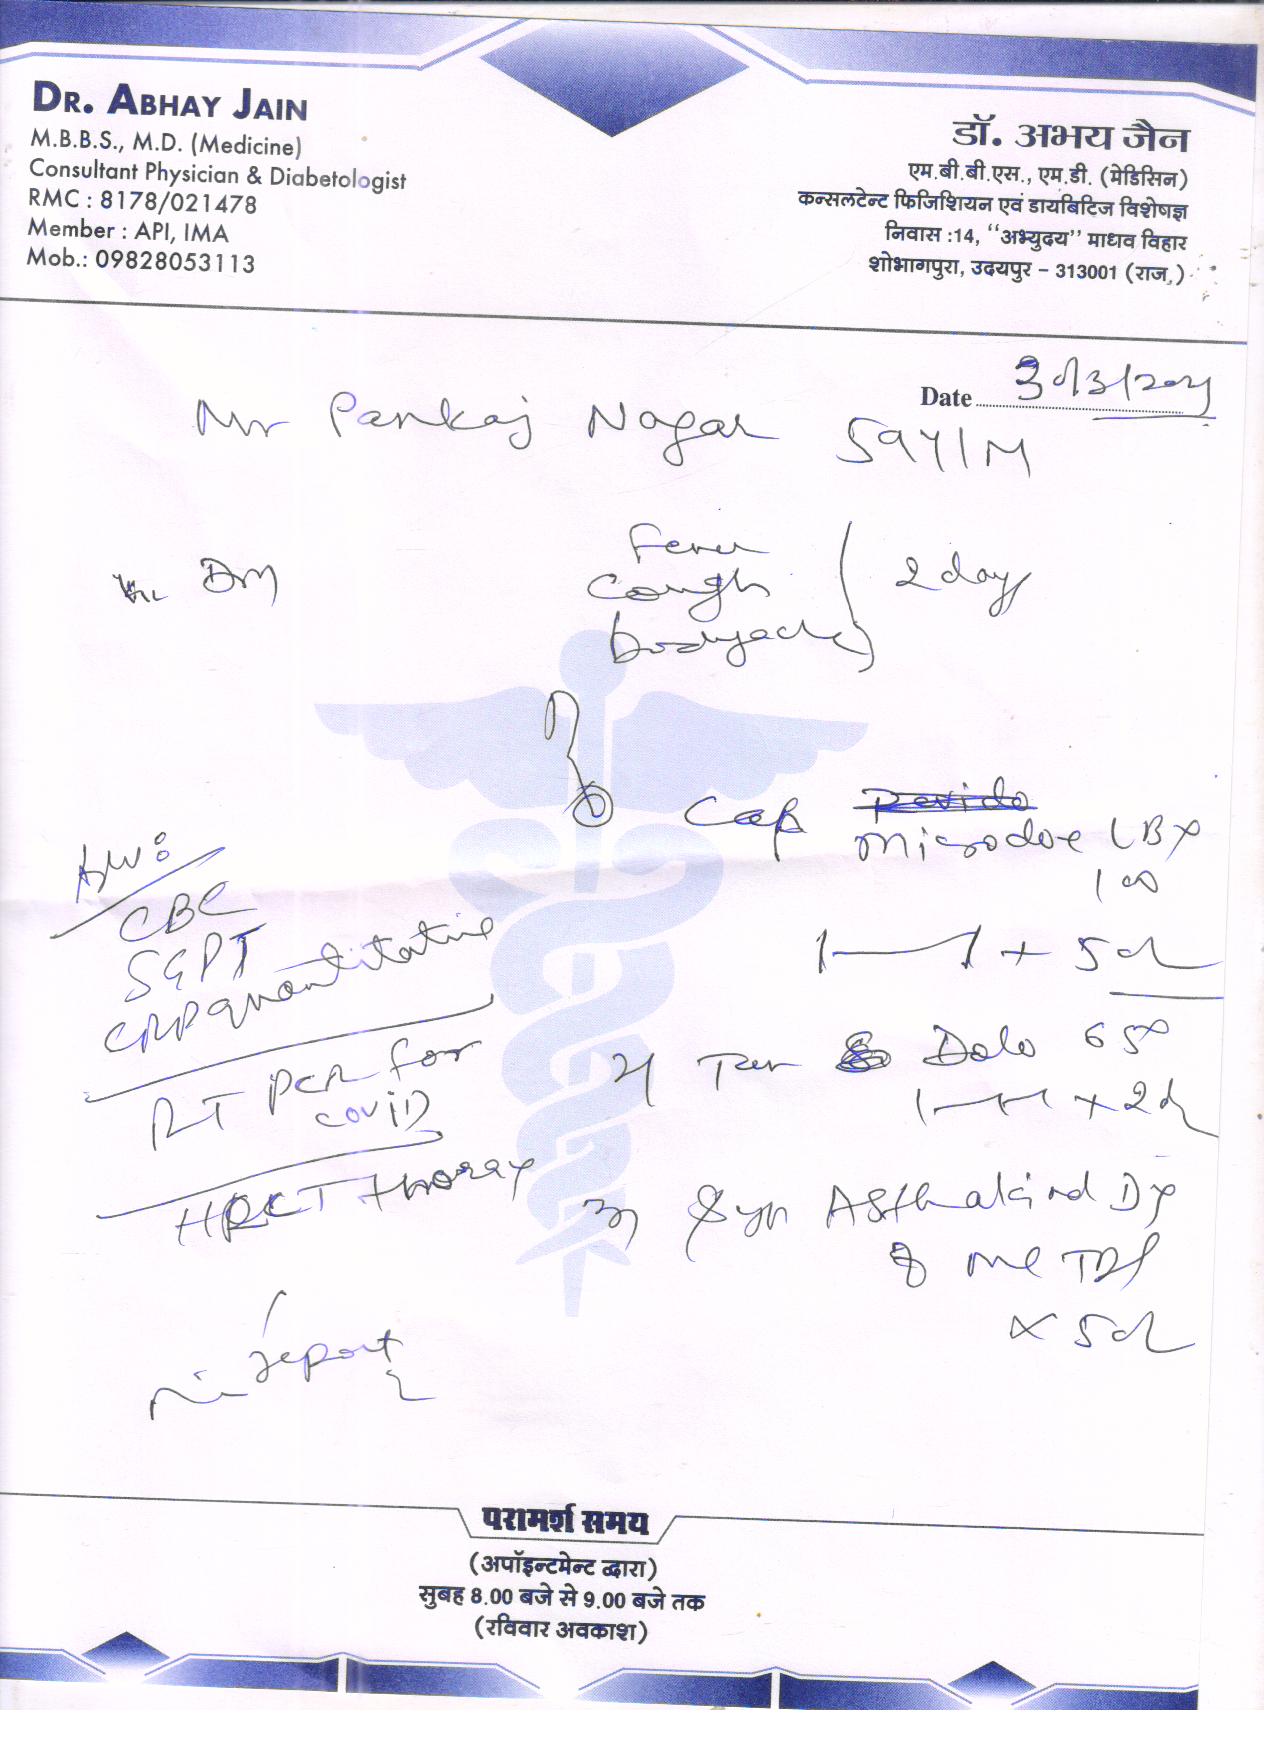 DR. ABHAY JAIN
M.B.B.S., M.D. (Medicine)
Consultant Physician & Diabetologist
RMC : 8178/021478
Member : API, IMA
Mob.: 09828053113
डॉ. अभय जैन
एम.बी.बी.एस., एम.डी. (मेडिसिन)
कन्सलटेन्ट फिजिशियन एवं डायबिटिज विशेषज्ञ
निवास :14, ‘‘अभ्युदय’’ माधव विहार
शोभागपुरा, उदयपुर – 313001 (राज.)
Date 30/3/2021
Mr Pankaj Nagar 59Y/M
DM
Fever
Cough
bodyache
2 day
Cap
Microdox LBX
100
x 5d
Dolo 650
x 2d
Syr Asthakind DX
ml TDS
x 5d
CBC
SGPT
CRP quantitative
RT PCR for
covid
HRCT thorax
report
परामर्श समय
(अपॉइन्टमेन्ट द्वारा)
सुबह 8.00 बजे से 9.00 बजे तक
(रविवार अवकाश)